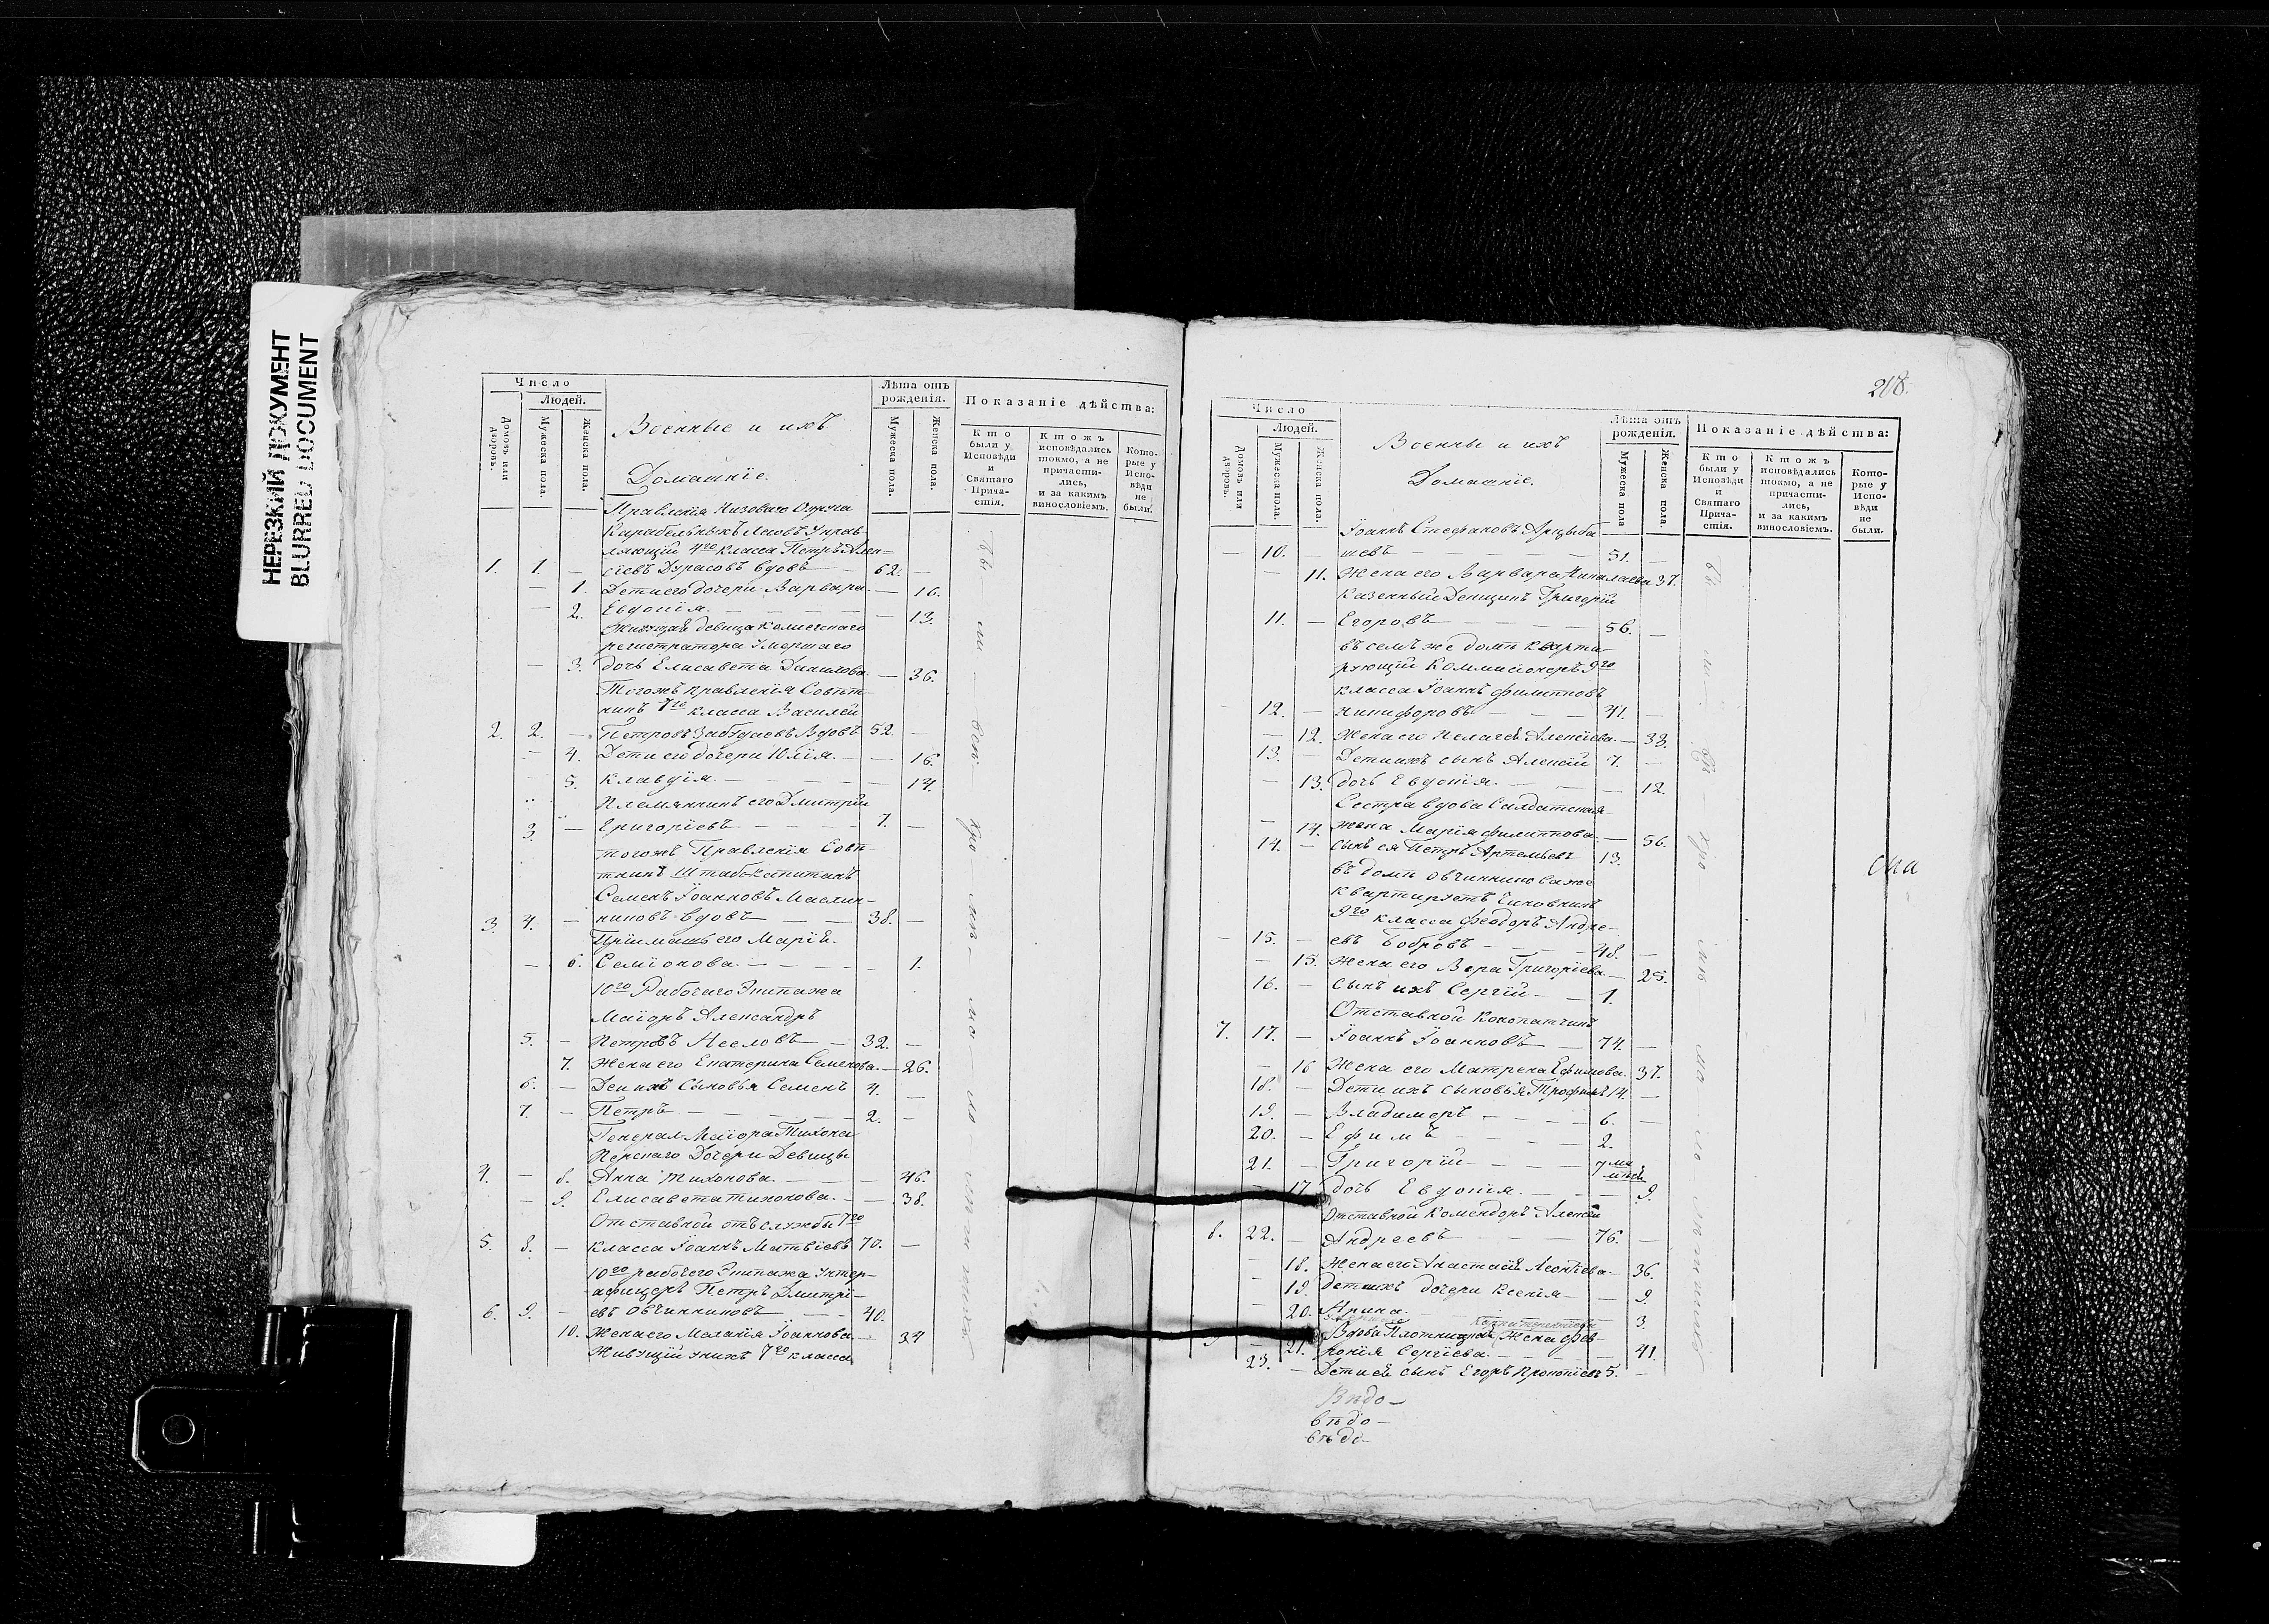 НЕРЕЗКИЙ ДОКУМЕНТ
BLURRED DOCUMENT
Число
Людей.
Домовъ или дворовъ.
Мужеска пола.
Женска пола.
Военные и ихъ
Домашніе.
Лѣта отъ рожденія.
Мужеска пола.
Женска пола.
Показаніе дѣйства:
Кто были у Исповѣди и Святаго Причастія.
Ктожъ исповѣдались токмо, а не причастились, и за какимъ винословіемъ.
Которые у Исповѣди не были.
Правленія Низоваго Округа
Карабельныхъ Лесовъ Управ
ляющій 4го класса Петръ Алек-
1. 1. — сіевъ Дурасовъ вдовъ 62. —
— 1. Дети его дочери Варвара. — 16.
— 2. Евдокія. — 13.
Живущая девица колежскаго
регистратора умершаго
— 3. дочь Елисавета Данилова. — 36.
Тогожъ правленія Совѣт
никъ 7го класса Василей
2. 2. — Петровъ вдовъ 52. —
— 4. Дети его дочери Юлія. — 16.
5. Клавдія. — 14.
Племянникъ его Дмитрій
3 — Григоріевъ 7. —
тогожъ Правленія Совѣ
тникъ Штабскапитанъ
Семенъ Іоанновъ Маслен-
3. 4. — никовъ вдовъ 38. —
его Марія
— 6. Семіонова. — 1.
10го Рабочаго Экипажа
Маіоръ Александръ
5. — Петровъ Нееловъ 32. —
7. Жена его Екатерина Семенова. — 26.
6. — Дети ихъ Сыновья Семенъ 4. —
7. — Петръ 2. —
Генерал Маіора Тихона
Перскаго Дочери Девицы
4. — 8. Анна Тихонова. — 46.
— 9. Елисавета Тихонова. — 38.
Отставной отъ службы 7го
5. 8. — класса Іоаннъ Матвіевъ 70. —
10го рабочего Экипажа Унтер-
афицеръ Петръ Дмитрі-
6. 9. — евъ Овчинниковъ 40. —
10. Жена его Меланія Іоаннова — 34
Живущій у нихъ 7го класса
218.
Число
Людей.
Домовъ или дворовъ.
Мужеска пола.
Женска пола.
Военны и ихъ
Домашніе.
Лѣта отъ рожденія.
Мужеска пола
Женска пола.
Показаніе дѣйства:
Кто были у Исповѣди и Святаго Причастія.
Ктожъ исповѣдались токмо, а не причастились, и за какимъ винословіемъ.
Которые у Исповѣди не были.
Іоаннъ Стефановъ Арцыба
— 10. — шевъ 51. —
— 11. Жена его Варвара Николаева 37.
Казенный Денщикъ Григорій
11. — Егоровъ 56. —
въ семъ же доме кварти-
рующій Коммисіонеръ 9го
класса Іоаннъ Филипповъ
— 12. — Никифоровъ 41. —
— 12. Жена его Пелагея Алексіева. — 33.
13. — Дети ихъ сынъ Алексій 7. —
— 13. дочь Евдокія. — 12.
Сестра вдова Салдатская
— 14. жена Марія Филиппова. — 56.
14. — сынъ ея Петръ Артемьевъ 13.
въ доме Овчинникова же
квартируетъ Чиновникъ
9го класса Феодоръ Андре-
— 15. — евъ Бобровъ 48. —
— 15. Жена его Вера Григоріева — 25.
16. — сынъ ихъ Сергій 1.
Отставной Конопатчикъ
7. 17. — Іоаннъ Іоанновъ 74. —
— 16 Жена его Матрена Ефимова. 37.
18. — Дети ихъ сыновья Трофимъ 14. —
19. — Владимеръ 6. —
20. — Ефимъ 2.
21. — Григорій 7
17. дочь Евдокія. — 9.
Отставной Комендоръ Алексій
8. 22. — Андреевъ 76. —
— 18. Жена его Анастасія Леонтіева — 36.
— 19. Дети ихъ дочери Ксенія — 9.
— 20. Арина. 3.
Вдова Плотницкая Жена Фев-
9 — 21. ронія Сергіева. 41.
23. — Дети ея сынъ Егоръ Прокопіевъ 5. —
Вѣдо-
вѣдо-
вѣдо-